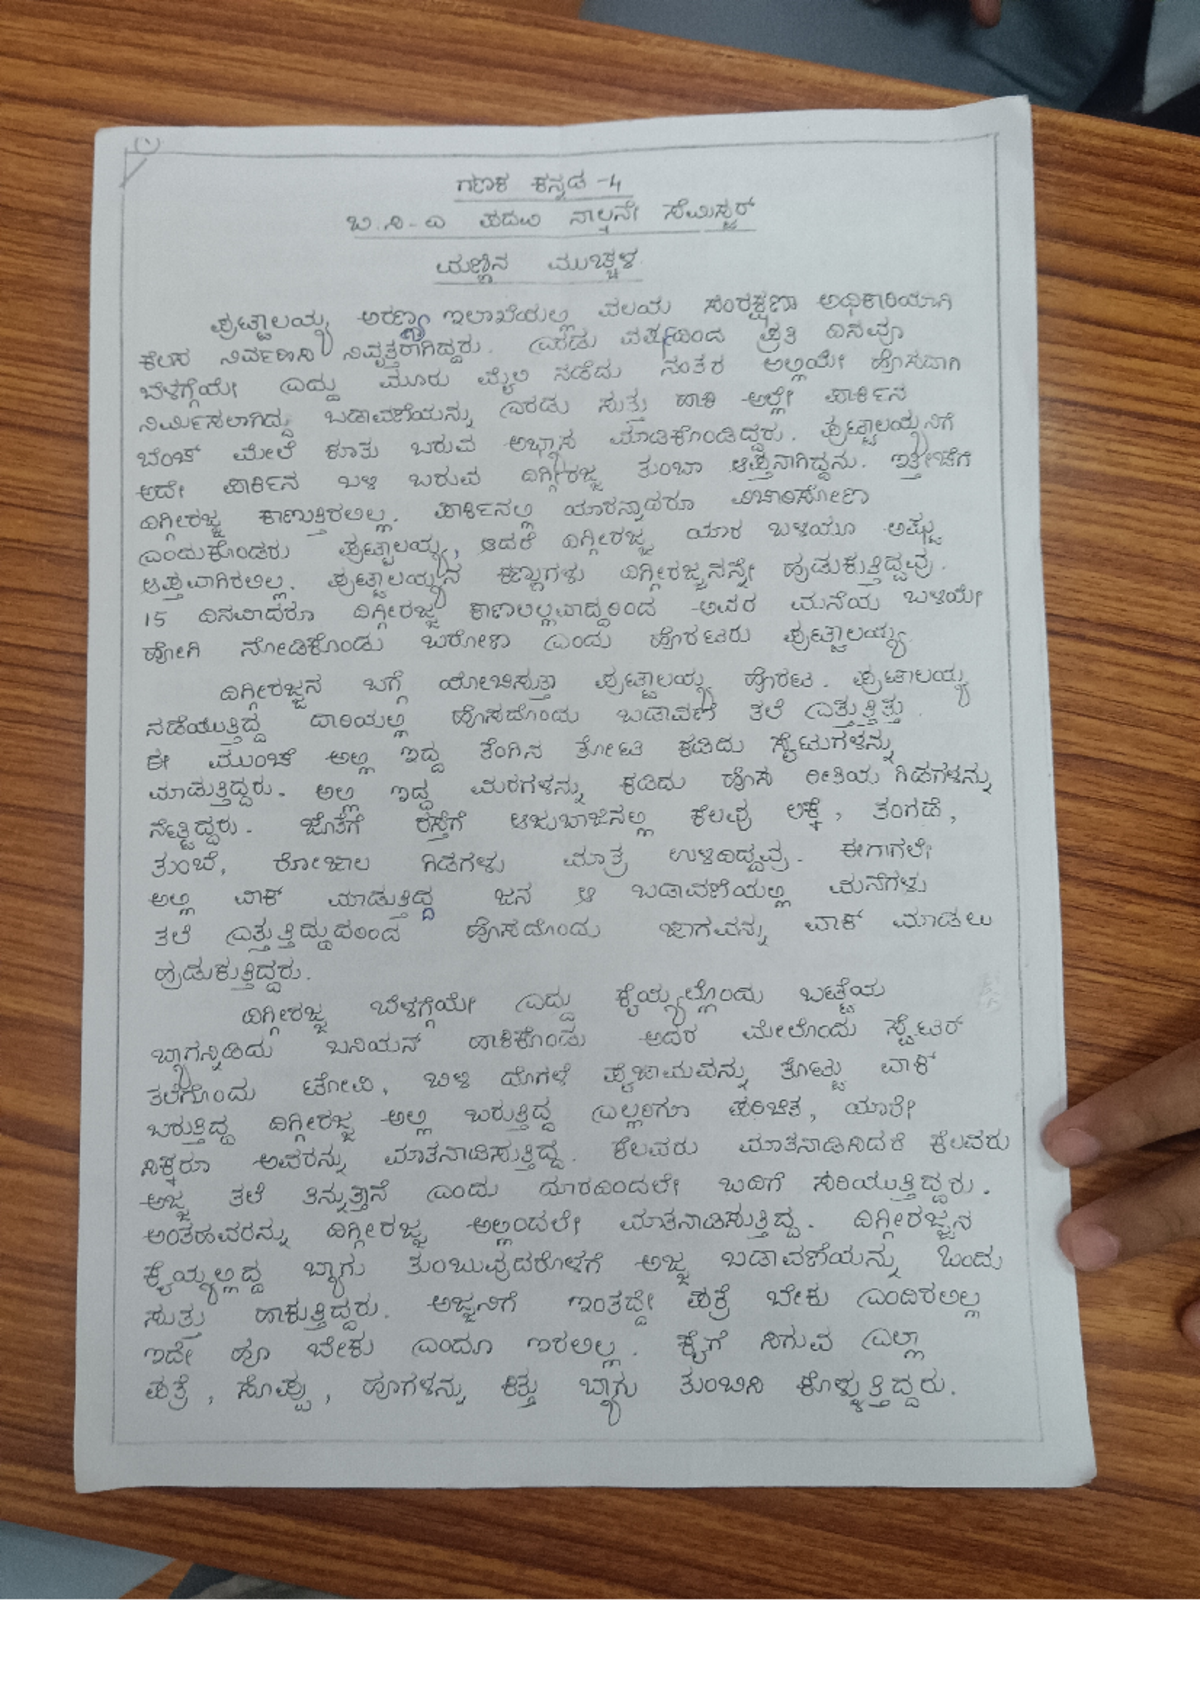 ಗಣಕ ಕನ್ನಡ -4
ಬಿ.ಸಿ.ಎ ಪದವಿ ನಾಲ್ಕನೇ ಸೆಮಿಸ್ಟರ್
ಮಣ್ಣಿನ ಮುಚ್ಚಳ
ಪುಟ್ಟಾಲಯ್ಯ ಅರಣ್ಯ ಇಲಾಖೆಯಲ್ಲಿ ವಲಯ ಸಂರಕ್ಷಣಾ ಅಧಿಕಾರಿಯಾಗಿ
ಕೆಲಸ ನಿರ್ವಹಿಸಿ ನಿವೃತ್ತರಾಗಿದ್ದರು. ಎರಡು ವರ್ಷದಿಂದ ಪ್ರತಿ ದಿನವೂ
ಬೆಳಗ್ಗೆಯೇ ಎದ್ದು ಮೂರು ಮೈಲಿ ನಡೆದು ನಂತರ ಅಲ್ಲಿಯೇ ಹೊಸದಾಗಿ
ನಿರ್ಮಿಸಲಾಗಿದ್ದು ಬಡಾವಣೆಯನ್ನು ಎರಡು ಸುತ್ತು ಹಾಕಿ ಅಲ್ಲೇ ಪಾರ್ಕಿನ
ಬೆಂಚ್ ಮೇಲೆ ಕೂತು ಬರುವ ಅಭ್ಯಾಸ ಮಾಡಿಕೊಂಡಿದ್ದರು. ಪುಟ್ಟಾಲಯ್ಯನಿಗೆ
ಅದೇ ಪಾರ್ಕಿನ ಬಳಿ ಬರುವ ದಿಗ್ಗೀರಜ್ಜ ತುಂಬಾ ಆಪ್ತನಾಗಿದ್ದನು. ಇತ್ತೀಚೆಗೆ
ದಿಗ್ಗೀರಜ್ಜ ಕಾಣುತ್ತಿರಲಿಲ್ಲ. ಪಾರ್ಕಿನಲ್ಲಿ ಯಾರನ್ನಾದರೂ ವಿಚಾರಿಸೋಣ
ಎಂದುಕೊಂಡರು ಪುಟ್ಟಾಲಯ್ಯ, ಆದರೆ ದಿಗ್ಗೀರಜ್ಜ ಯಾರ ಬಳಿಯೂ ಅಷ್ಟು
ಆಪ್ತವಾಗಿರಲಿಲ್ಲ. ಪುಟ್ಟಾಲಯ್ಯನ ಕಣ್ಣುಗಳು ದಿಗ್ಗೀರಜ್ಜನನ್ನೇ ಹುಡುಕುತ್ತಿದ್ದವು.
15 ದಿನವಾದರೂ ದಿಗ್ಗೀರಜ್ಜ ಕಾಣಲಿಲ್ಲವಾದ್ದರಿಂದ ಅವರ ಮನೆಯ ಬಳಿಯೇ
ಹೋಗಿ ನೋಡಿಕೊಂಡು ಬರೋಣ ಎಂದು ಹೊರಟರು ಪುಟ್ಟಾಲಯ್ಯ.
ದಿಗ್ಗೀರಜ್ಜನ ಬಗ್ಗೆ ಯೋಚಿಸುತ್ತಾ ಪುಟ್ಟಾಲಯ್ಯ ಹೊರಟ. ಪುಟಾಲಯ್ಯ
ನಡೆಯುತ್ತಿದ್ದ ದಾರಿಯಲ್ಲಿ ಹೊಸದೊಂದು ಬಡಾವಣೆ ತಲೆ ಎತ್ತುತ್ತಿತ್ತು.
ಈ ಮುಂಚೆ ಅಲ್ಲಿ ಇದ್ದ ತೆಂಗಿನ ತೋಟ ಕಡಿದು ಸೈಟುಗಳನ್ನು
ಮಾಡುತ್ತಿದ್ದರು. ಅಲ್ಲಿ ಇದ್ದ ಮರಗಳನ್ನು ಕಡಿದು ಹೊಸ ರೀತಿಯ ಗಿಡಗಳನ್ನು
ನೆಟ್ಟಿದ್ದರು. ಜೊತೆಗೆ ರಸ್ತೆಗೆ ಆಜುಬಾಜಿನಲ್ಲಿ ಕೆಲವು ಲಕ್ಕಿ, ತಂಗಡೆ,
ತುಂಬೆ, ರೋಜಾಲ ಗಿಡಗಳು ಮಾತ್ರ ಉಳಿದಿದ್ದವು. ಈಗಾಗಲೇ
ಅಲ್ಲಿ ವಾಕ್ ಮಾಡುತ್ತಿದ್ದ ಜನ ಆ ಬಡಾವಣೆಯಲ್ಲಿ ಮನೆಗಳು
ತಲೆ ಎತ್ತುತ್ತಿದ್ದುದರಿಂದ ಹೊಸದೊಂದು ಜಾಗವನ್ನು ವಾಕ್ ಮಾಡಲು
ಹುಡುಕುತ್ತಿದ್ದರು.
ದಿಗ್ಗೀರಜ್ಜ ಬೆಳಗ್ಗೆಯೇ ಎದ್ದು ಕೈಯ್ಯಲ್ಲೊಂದು ಬಟ್ಟೆಯ
ಬ್ಯಾಗನ್ನಿಡಿದು ಬನಿಯನ್ ಹಾಕಿಕೊಂಡು ಅದರ ಮೇಲೊಂದು ಸ್ವೆಟರ್
ತಲೆಗೊಂದು ಟೋಪಿ, ಬಿಳಿ ದೊಗಳೆ ಪೈಜಾಮವನ್ನು ತೊಟ್ಟು ವಾಕ್
ಬರುತ್ತಿದ್ದ ದಿಗ್ಗೀರಜ್ಜ ಅಲ್ಲಿ ಬರುತ್ತಿದ್ದ ಎಲ್ಲರಿಗೂ ಪರಿಚಿತ, ಯಾರೇ
ಸಿಕ್ಕರೂ ಅವರನ್ನು ಮಾತನಾಡಿಸುತ್ತಿದ್ದ. ಕೆಲವರು ಮಾತನಾಡಿಸಿದರೆ ಕೆಲವರು
ಅಜ್ಜ ತಲೆ ತಿನ್ನುತ್ತಾನೆ ಎಂದು ದೂರದಿಂದಲೇ ಬದಿಗೆ ಸರಿಯುತ್ತಿದ್ದರು.
ಅಂತಹವರನ್ನು ದಿಗ್ಗೀರಜ್ಜ ಅಲ್ಲಿಂದಲೇ ಮಾತನಾಡಿಸುತ್ತಿದ್ದ. ದಿಗ್ಗೀರಜ್ಜನ
ಕೈಯ್ಯಲ್ಲಿದ್ದ ಬ್ಯಾಗು ತುಂಬುವುದರೊಳಗೆ ಅಜ್ಜ ಬಡಾವಣೆಯನ್ನು ಒಂದು
ಸುತ್ತು ಹಾಕುತ್ತಿದ್ದರು. ಅಜ್ಜನಿಗೆ ಇಂತದ್ದೇ ಪತ್ರೆ ಬೇಕು ಎಂದಿರಲಿಲ್ಲ
ಇದೇ ಹೂ ಬೇಕು ಎಂದೂ ಇರಲಿಲ್ಲ. ಕೈಗೆ ಸಿಗುವ ಎಲ್ಲಾ
ಪತ್ರೆ, ಸೊಪ್ಪು, ಹೂಗಳನ್ನು ಕಿತ್ತು ಬ್ಯಾಗು ತುಂಬಿಸಿ ಕೊಳ್ಳುತ್ತಿದ್ದರು.